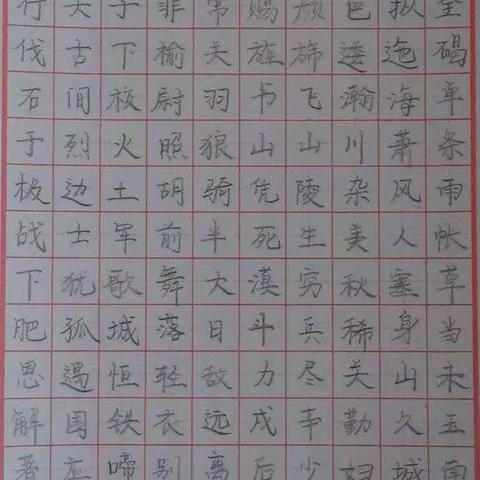 行天子非常赐颜色金
伐古下榆关旌旆逶迤碣
石间校尉羽书飞瀚海单
于烈火照狼山山川萧条
极边土胡骑凭陵杂风雨
战士军前半死生美人帐
下犹歌舞大漠穷秋塞草
肥孤城落日斗兵稀身当
恩遇恒轻敌力尽关山未
解围铁衣远戍辛勤久玉
著应啼别离后少妇城南